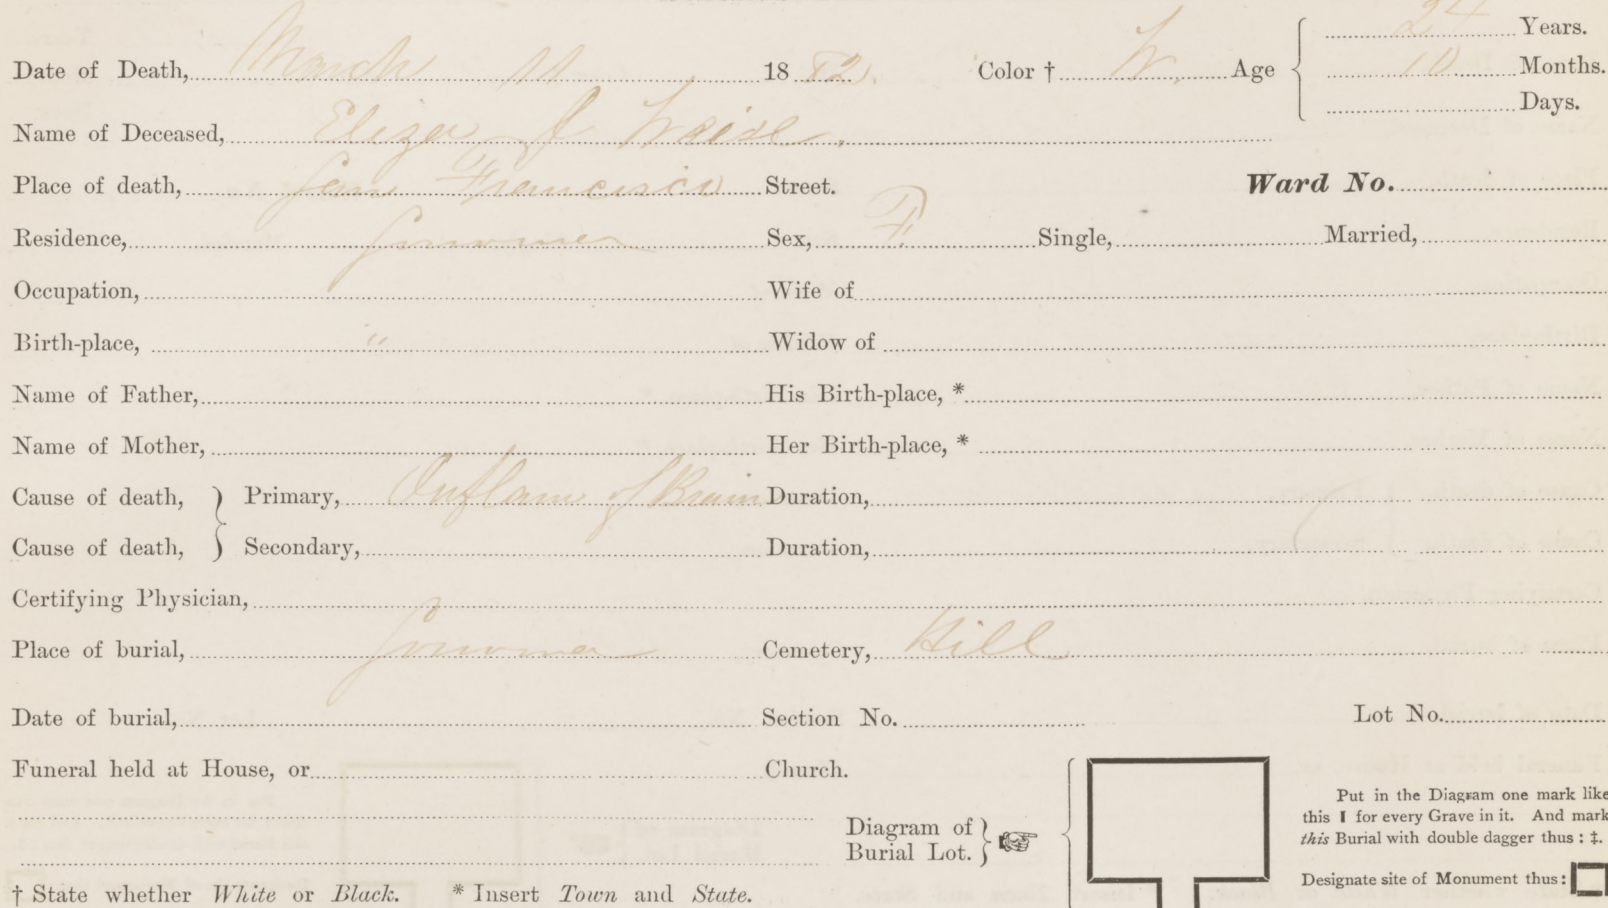 24 Years.
Date of Death, March 11 1882. Color † W. Age 10 Months.
Days.
Name of Deceased, Eliza J
Place of death, San Francisco Street. Ward No.
Residence, Sonoma Sex, F. Single, Married,
Occupation, Wife of
Birth-place, " Widow of
Name of Father, His Birth-place, *
Name of Mother, Her Birth-place, *
Cause of death, Primary, Inflam of Brain Duration,
Cause of death, Secondary, Duration,
Certifying Physician,
Place of burial, Sonoma Cemetery, Hill
Date of burial, Section No. Lot No.
Funeral held at House, or Church.
Put in the Diagram one mark like
this I for every Grave in it. And mark
this Burial with double dagger thus : ‡.
Diagram of
Burial Lot.
Designate site of Monument thus :
† State whether White or Black. * Insert Town and State.